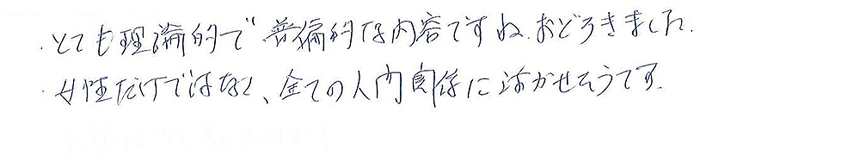 ・とても理論的で普偏的な内容ですね.おどろきました.
・女性だけではなく、全ての人間関係に活かせそうです.